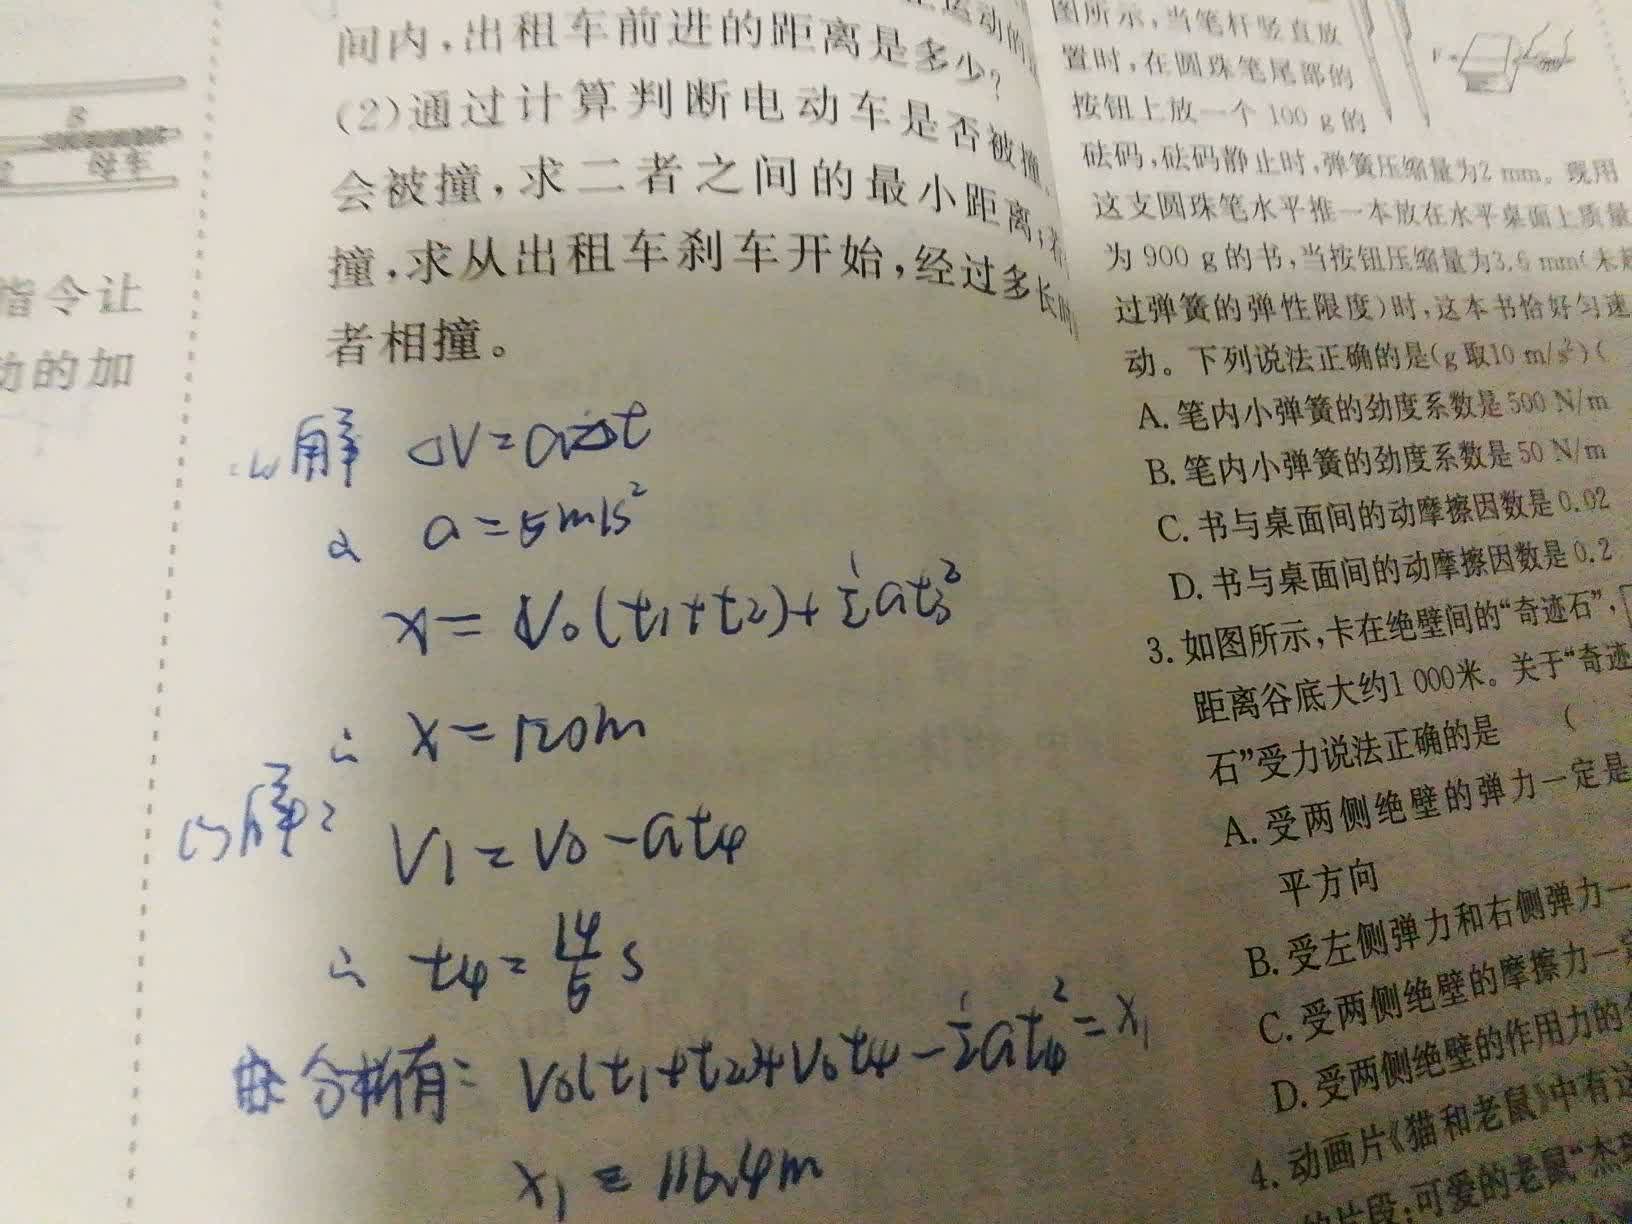 母车
指令让
动的加
间内，出租车前进的距离是多少？
(2)通过计算判断电动车是否被撞。
会被撞，求二者之间的最小距离；若
撞，求从出租车刹车开始，经过多长时
者相撞。
解 △V=a△t
a=5m/s²
x=V₀(t₁+t₂)+½at₃²
∴ x=120m
解：
V₁=V₀-at₄
∴ t₄=14/5 s
分析有：V₀(t₁+t₂)+V₀t₄-½at₄²=x₁
x₁=116.4m
图所示，当笔杆竖直放
置时，在圆珠笔尾部的
按钮上放一个 100 g的
砝码，砝码静止时，弹簧压缩量为2 mm。现用
这支圆珠笔水平推一本放在水平桌面上质量
为 900 g的书，当按钮压缩量为3.6 mm(未超
过弹簧的弹性限度)时，这本书恰好匀速
动。下列说法正确的是(g取10 m/s²)(
A. 笔内小弹簧的劲度系数是500 N/m
B. 笔内小弹簧的劲度系数是50 N/m
C. 书与桌面间的动摩擦因数是0.02
D. 书与桌面间的动摩擦因数是0.2
3. 如图所示，卡在绝壁间的“奇迹石”，
距离谷底大约1 000米。关于“奇迹
石”受力说法正确的是 (
A. 受两侧绝壁的弹力一定是
平方向
B. 受左侧弹力和右侧弹力一
C. 受两侧绝壁的摩擦力一定
D. 受两侧绝壁的作用力的
4. 动画片《猫和老鼠》中有这
的片段：可爱的老鼠“杰